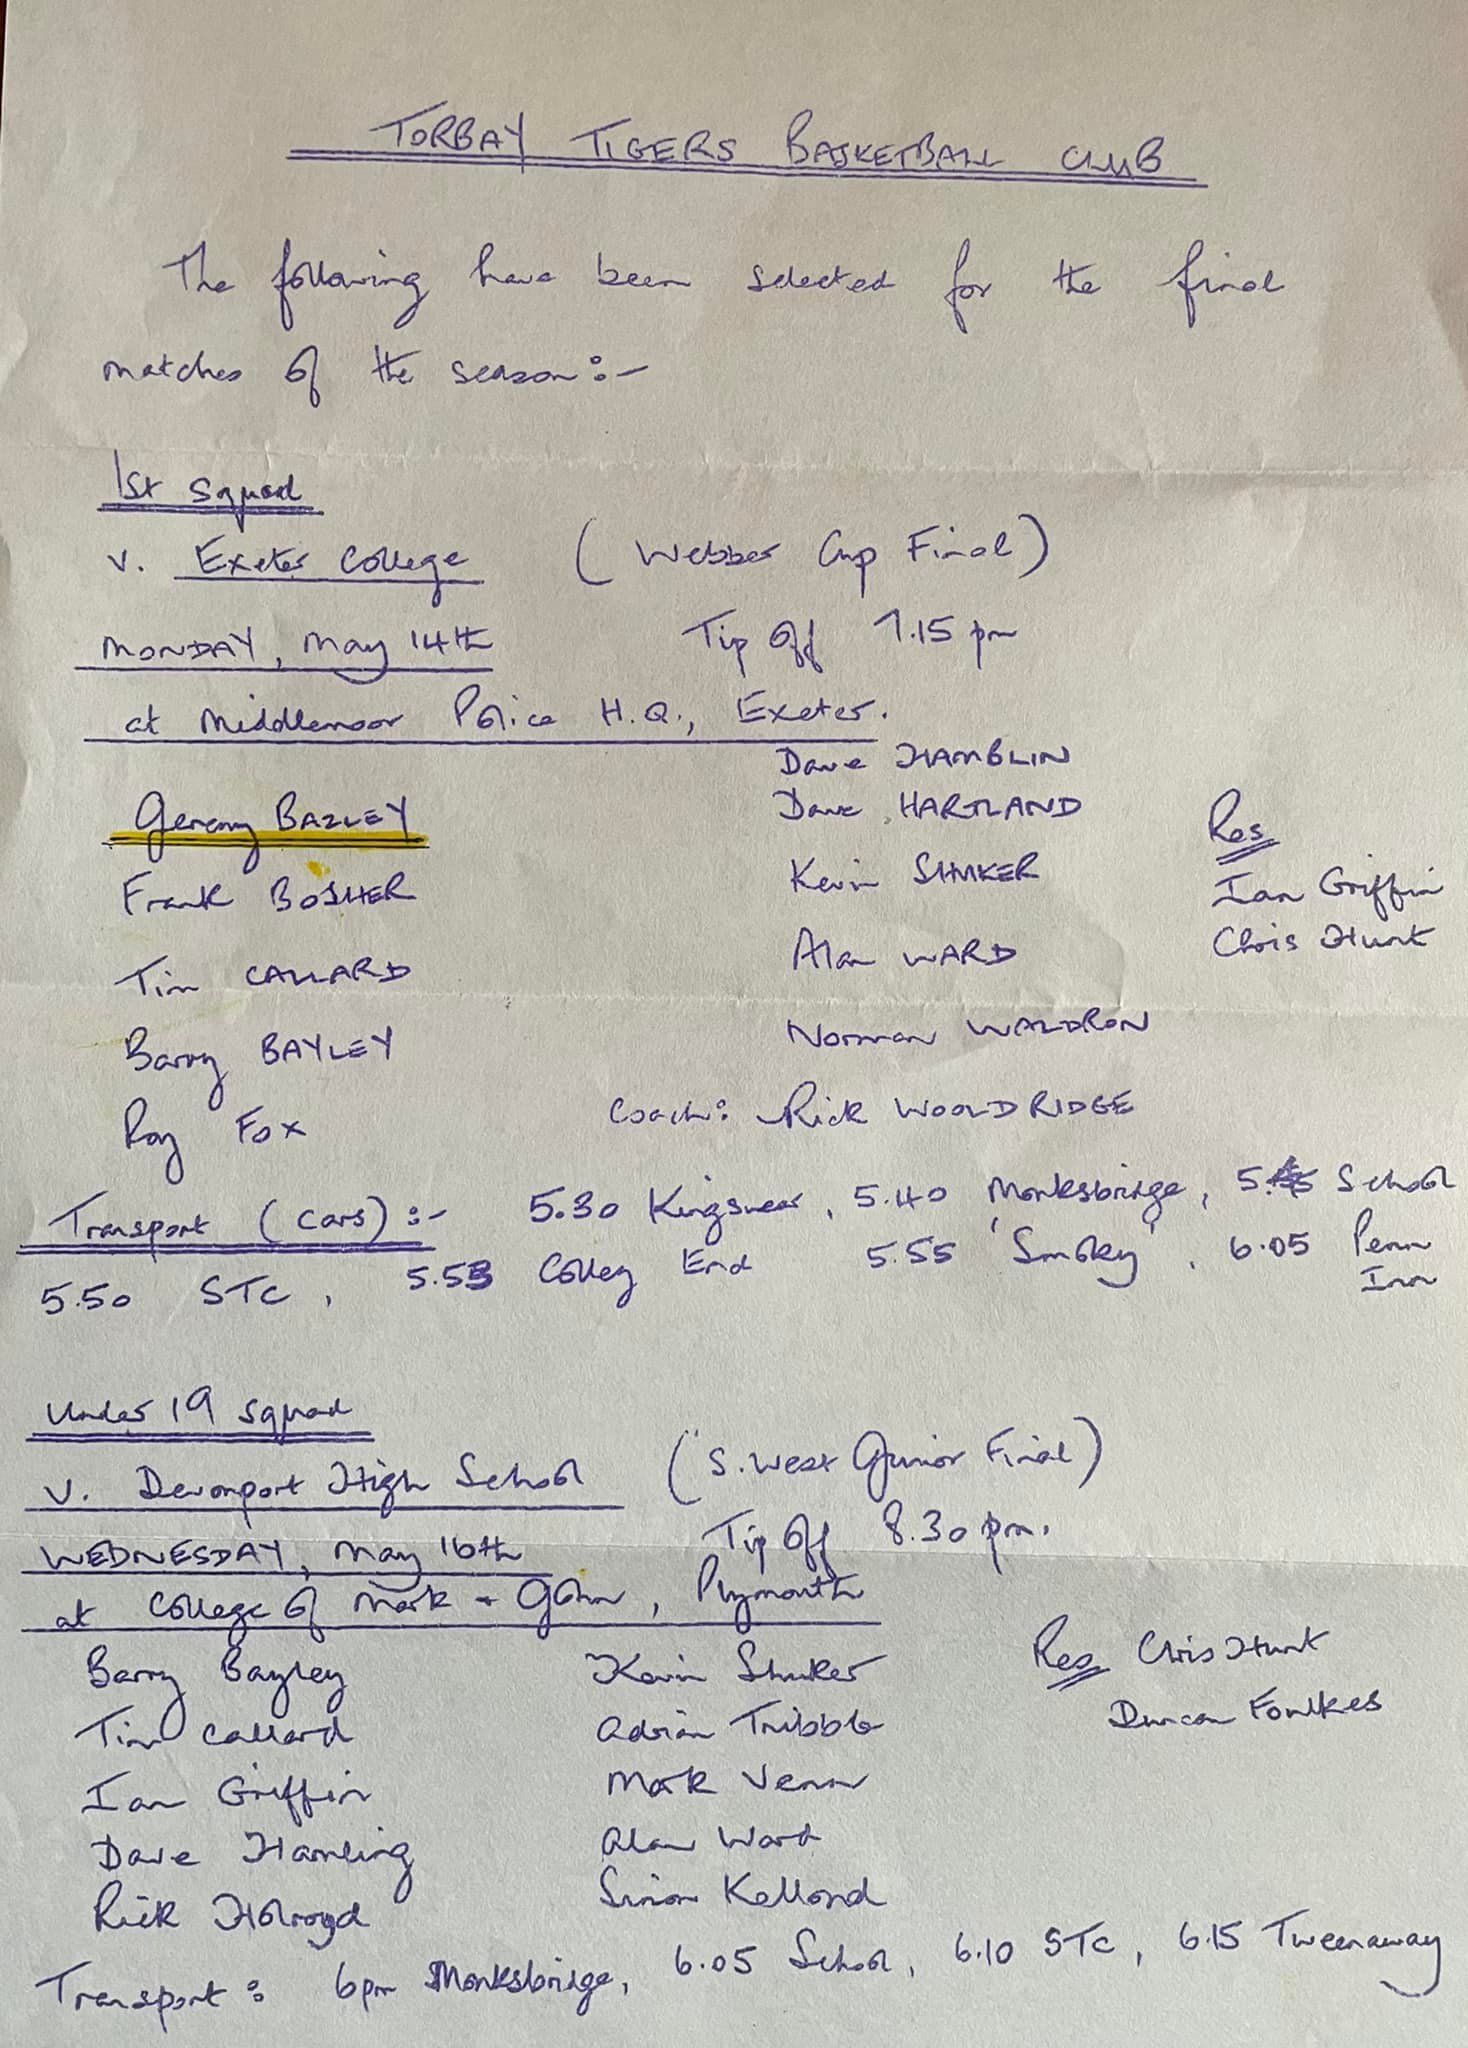 TORBAY TIGERS BASKETBALL CLUB
The following have been selected for the final
matches of the season :-
1st Squad
v. Exeter College (Webber Cup Final)
MONDAY, May 14th Tip Off 7.15 pm
at Middlemoor Police H.Q., Exeter.
Dave HAMBLIN
Geremy BAZLEY Dave HARTLAND Res
Frank BOSHER Kevin SHUKER Ian Griffin
Tim CALLARD Alan WARD Chris Hunt
Barry BAYLEY Norman WALDRON
Roy FOX Coach: Rick WOOLDRIDGE
Transport (cars) :- 5.30 Kingswear, 5.40 Monksbridge, School
5.50 STC, 5.53 Colley End 5.55 'Smoky', 6.05 Penn
Inn
Under 19 Squad
v. Devonport High School (S. West Junior Final)
WEDNESDAY, May 16th Tip Off 8.30 pm.
at College of Mark + John, Plymouth
Barry Bayley Kevin Shuker Res Chris Hunt
Tim Callard Adrian Tribble Duncan Foulkes
Ian Griffin Mark Venn
Dave Hamling Alan Ward
Rick Holroyd Simon Kellond
Transport : 6pm Monksbridge, 6.05 School, 6.10 STC, 6.15 Tweenaway